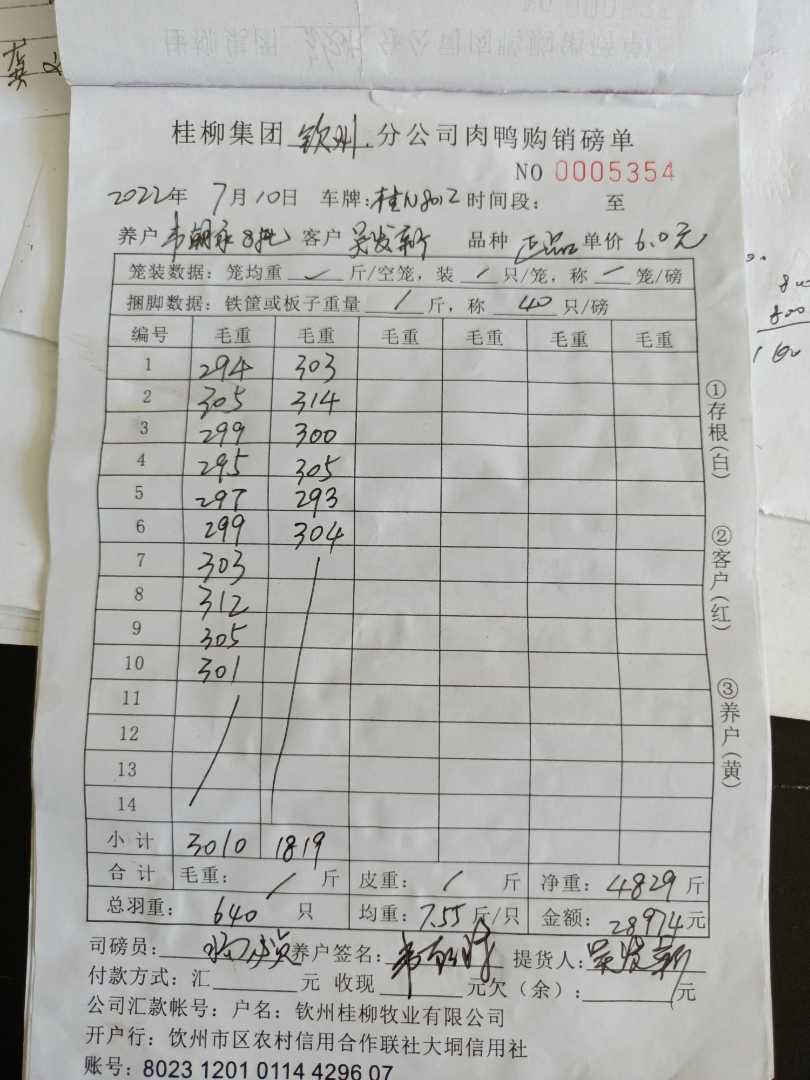 桂柳集团 钦州 分公司肉鸭购销磅单
NO 0005354
2022年 7月10日 车牌:桂N8012 时间段: 至
养户 韦朝永8批 客户 吴发新 品种 正品 单价 6.0元
笼装数据: 笼均重 斤/空笼, 装 / 只/笼, 称 笼/磅
捆脚数据: 铁筐或板子重量 / 斤, 称 40 只/磅
编号 毛重 毛重 毛重 毛重 毛重 毛重
1 294 303
2 305 314
3 299 300
4 295 305
5 297 293
6 299 304
7 303
8 312
9 305
10 301
11
12
13
14
小计 3010 1819
合计 毛重: / 斤 皮重: / 斤 净重: 4829 斤
总羽重: 640 只 均重: 7.55 斤/只 金额: 28974元
司磅员: 养户签名: 提货人: 吴发新
付款方式: 汇 元 收现 元欠(余): 元
公司汇款帐号: 户名: 钦州桂柳牧业有限公司
开户行: 钦州市区农村信用合作联社大垌信用社
账号: 8023 1201 0114 4296 07
①存根(白)
②客户(红)
③养户(黄)